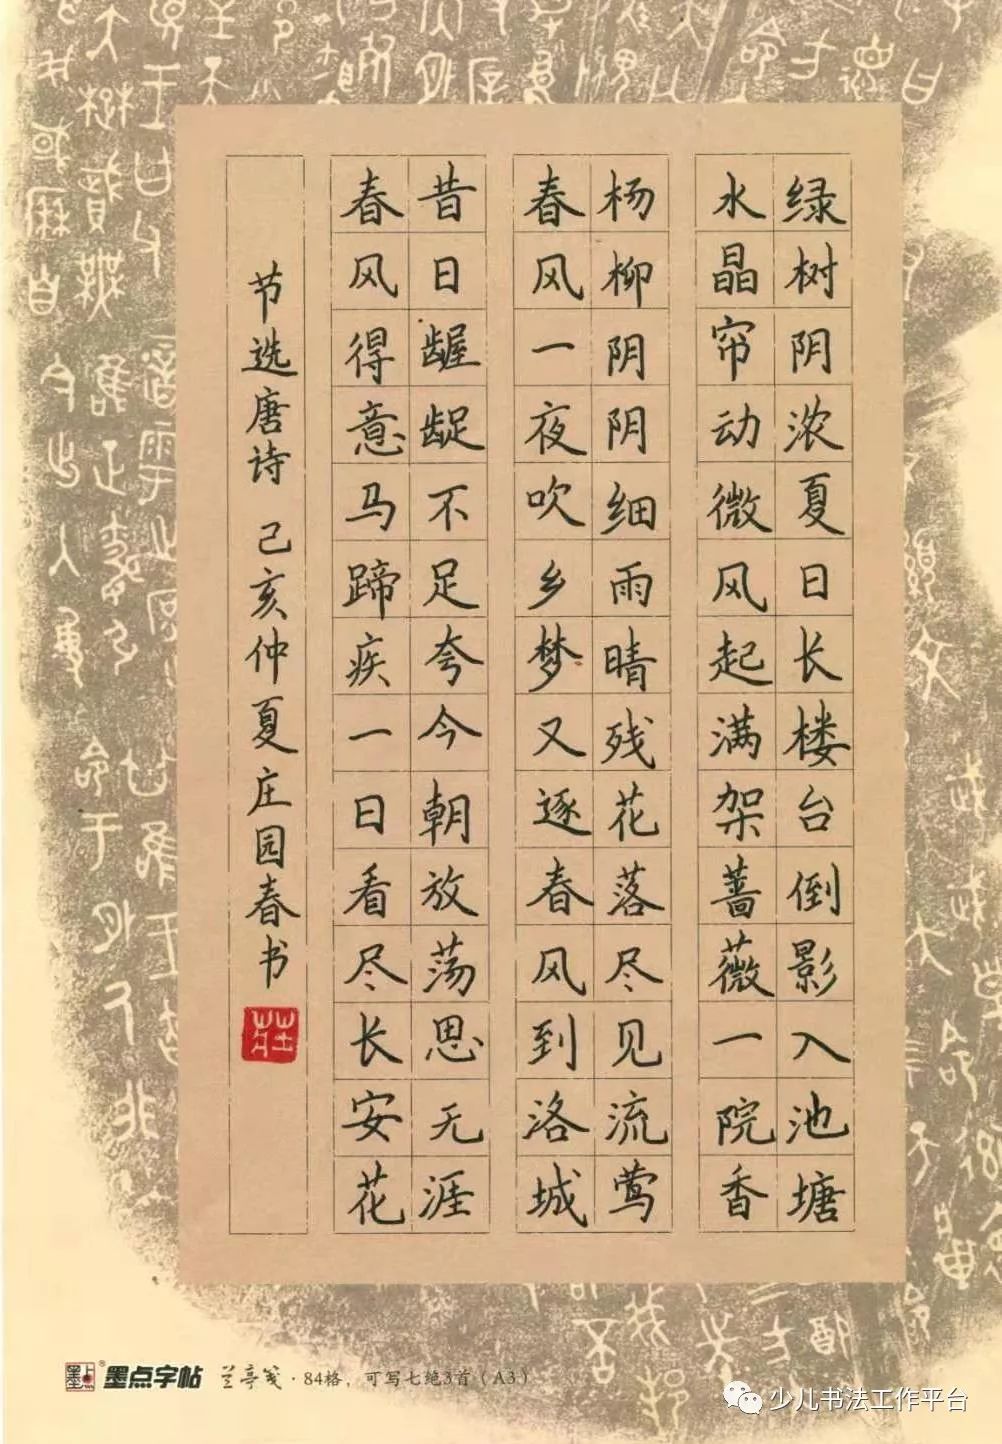 绿树阴浓夏日长楼台倒影入池塘
水晶帘动微风起满架蔷薇一院香
杨柳阴阴细雨晴残花落尽见流莺
春风一夜吹乡梦又逐春风到洛城
昔日龌龊不足夸今朝放荡思无涯
春风得意马蹄疾一日看尽长安花
节选唐诗 己亥仲夏庄园春书
墨点
墨点字帖® 兰亭笺·84格，可写七绝3首（A3）
少儿书法工作平台